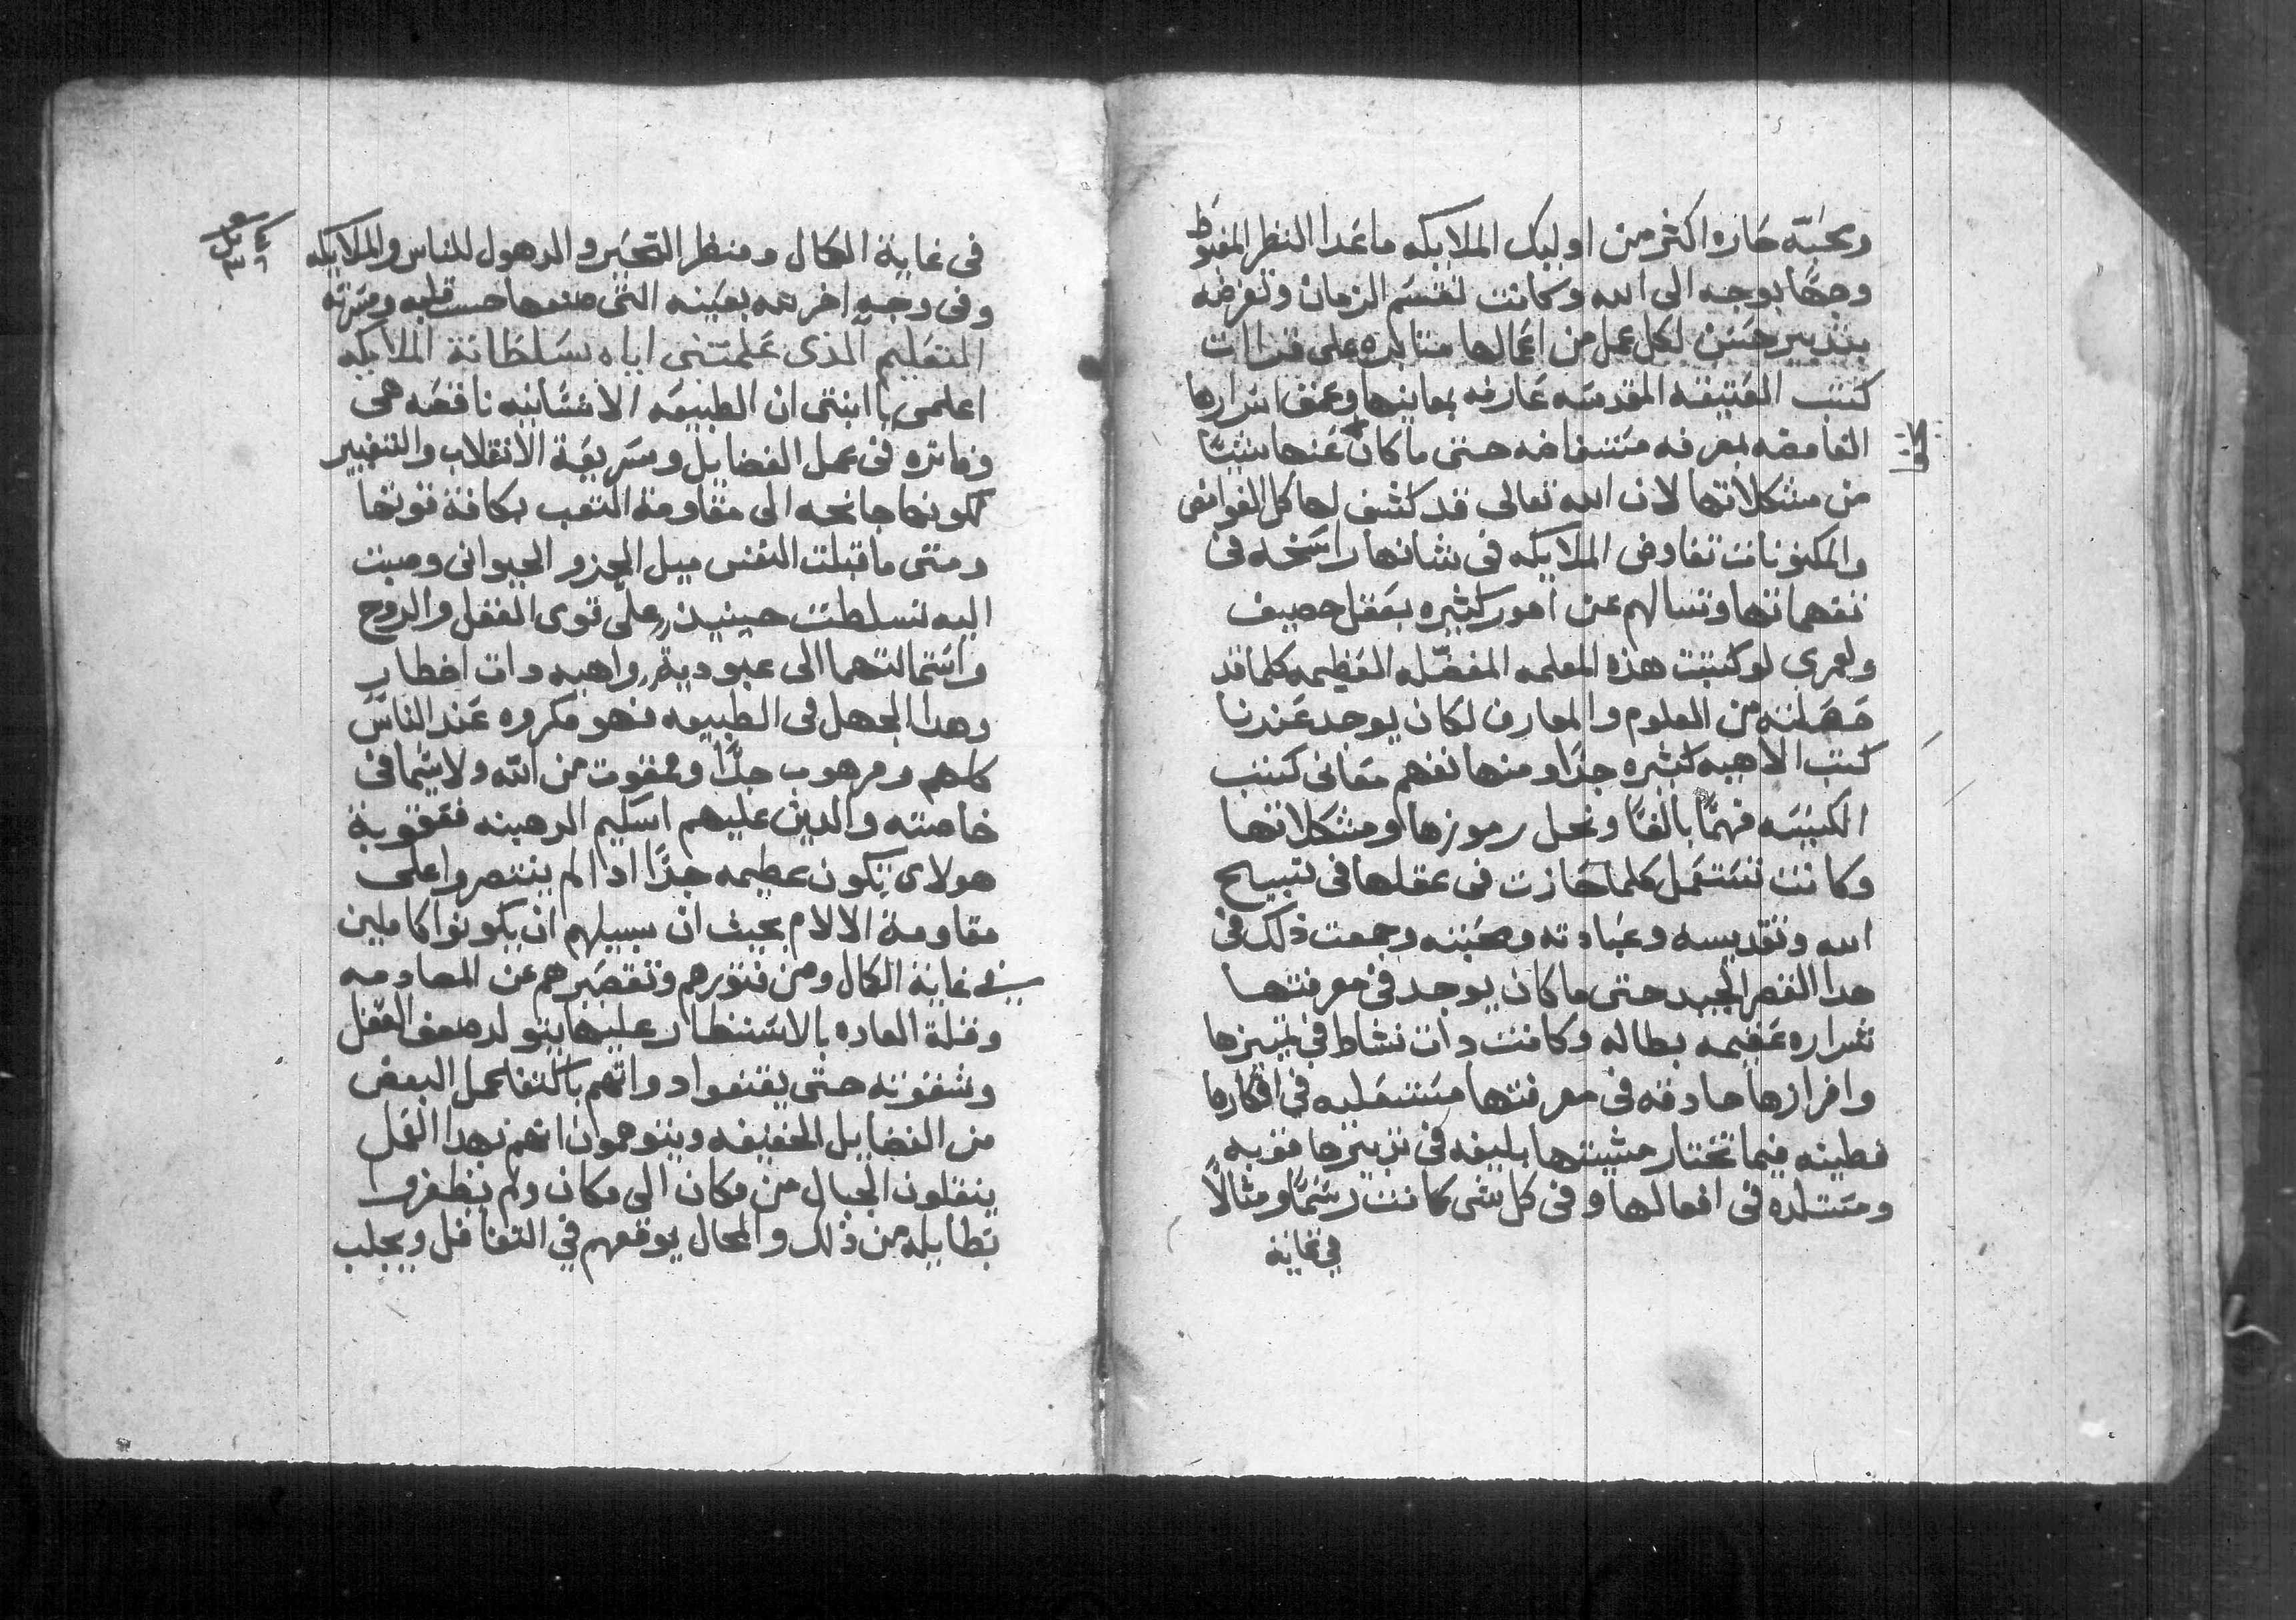 ومحبّه حاره اكثر من اوليك الملايكه ماعدا النظر المغبوط
وجهًا بوجه الى الله وكانت تقسم الزمان وتفرضه
بتدبير حسن لكل عمل من اعمالها متابره على قراات
كتب العتيقه المقدسه عارفه بمعانيها وعمق اسرارها
الغامضه بمعرفه مستفاضه حتى ما كان عنها شيًا
لا
من مشكلاتها لان الله تعالى قد كشف لها كل الغوامض
والمكنونات تفاوض الملايكه فى شانها راسخه فى
تفهماتها وتسالهم عن امور كثيره بعقل حصيف
ولعمرى لو كتبت هذه المعلمه المفضّله العظيمه كلما قد
حصلته من العلوم والمعارف لكان يوجد عندنا
كتب الاهيه كثيره جدًا ومنها نفهم معانى كتب
الكنيسه فهمًا بالغًا ونحل رموزها ومشكلاتها
وكانت تستعمل كلما حازت فى عقلها فى تسبيح
الله وتقديسه وعبادته ومحبته وجمعت ذلك فى
هدا القصر المجيد حتى ما كان يوجد فى معرفتها
شراره عقيمه بطاله وكانت دات نشاط فى تمييزها
وافرازها حادقه فى معرفتها مستعليه فى افكارها
فطينه فيما تختار مشيتها بليغه فى تمييزها قويه
ومستلده فى افعالها وفى كل شى كانت رسمًا ومثالاً
فى غاية
فى غاية الكمال ومنظر التحير والدهول للناس والملايكه
وفى وجه اخر بعينه التى قلبه ومسرته
التعليم الذى علمتنى اياه سلطانة الملايكه
اعلمى يا ابنتى ان الطبيعه الانسانيه ناقصه هى
وفاتره فى عمل الفضايل وسريعة الانقلاب والتغيير
لكونها جانحه الى مقاومة التعب بكافة قوتها
ومتى ما قبلت النفس ميل الجزو الحيوانى وصبت
اليه تسلطت حينيذ على قوى العقل والروح
واستمالتهما الى عبودية واهيه دات اخطار
وهدا الجهل فى الطبيعه فهو مكروه عند الناس
كلهم ومرهوب جدًا وممقوت من الله ولا سيما فى
خاصته والدين عليهم اسكيم الرهبنه فعقوبة
هولاى تكون عظيمه جدًا ادا لم ينتصروا على
مقاومة الالام بحيث ان سبيلهم ان يكونوا كاملين
فى غاية الكمال ومن فتورهم وتقصيرهم عن المصادمه
وقلة العاده بالاستظار عليها يتولد ضعف العقل
وشقوته حتى يقنعوا دواتهم باكتفا عمل البعض
من الفضايل الخفيفه ويتوهمون انهم بهدا العمل
ينقلون الجبال من مكان الى مكان ولم يظفروا
بطايله من ذلك والمحال يوقعهم فى التغافل ويجلب